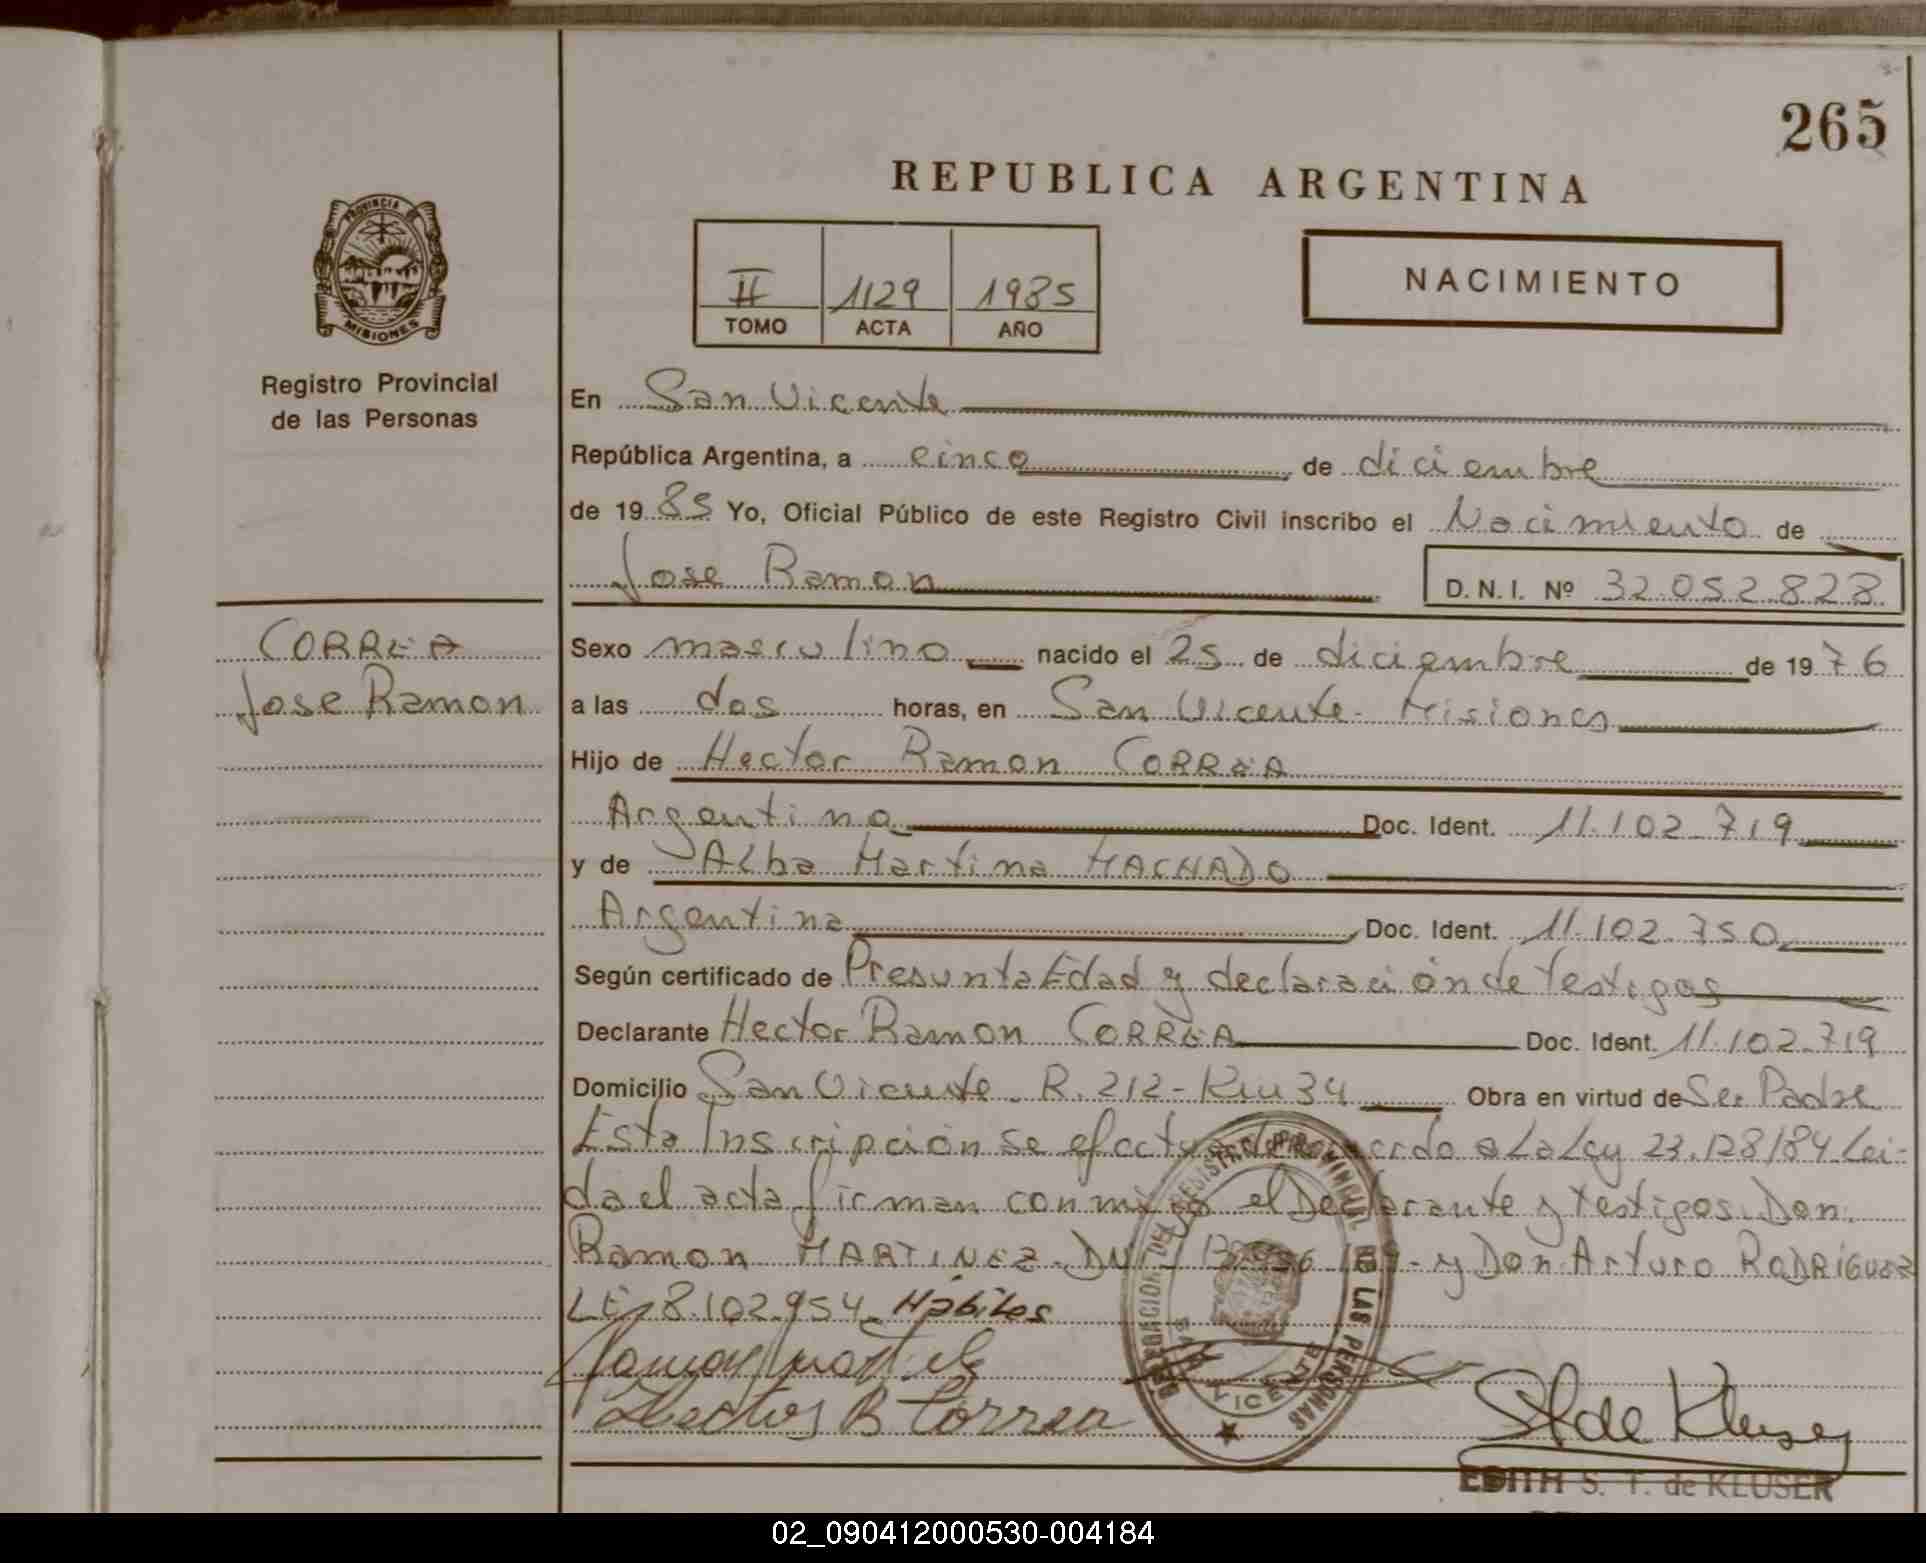 265
REPUBLICA ARGENTINA
PROVINCIA DE
MISIONES
Registro Provincial
de las Personas
II 1129 1985
TOMO ACTA AÑO
NACIMIENTO
En San Vicente
República Argentina, a cinco de diciembre
de 19 85 Yo, Oficial Público de este Registro Civil inscribo el Nacimiento de
Jose Ramon D.N.I. Nº 32.052.828
CORREA
Jose Ramon
Sexo masculino nacido el 25 de diciembre de 19 76
a las dos horas, en San Vicente - Misiones
Hijo de Hector Ramon CORREA
Argentino Doc. Ident. 11.102.719
y de Alba Martina MACHADO
Argentina Doc. Ident. 11.102.750
Según certificado de Presunta Edad y declaración de Testigos
Declarante Hector Ramon CORREA Doc. Ident. 11.102.719
Domicilio San Vicente - R. 212 - Km 34 Obra en virtud de Ser Padre
Esta Inscripción se efectua de acuerdo a La Ley 23.128/84 Lei-
da el acta firman conmigo el Declarante y testigos Don
Ramon MARTINEZ - DNI y Don Arturo RODRIGUEZ
LE 8.102.954 Hábiles
Hector R Correa
DELEGACION DEL REGISTRO PROVINCIAL DE LAS PERSONAS
SAN VICENTE
S T de Kluser
EDITH S. T. de KLUSER
02_090412000530-004184